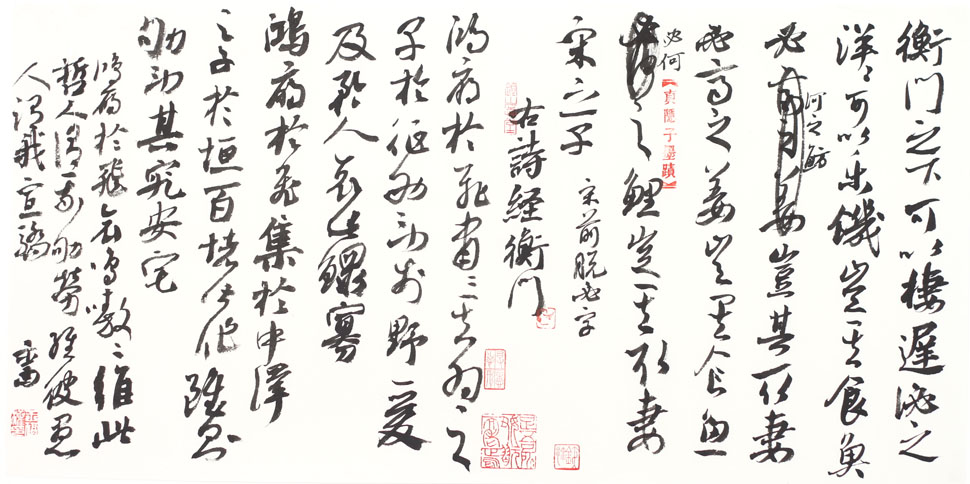 衡門之下可以棲遲泌之
洋〻可以乐饑豈其食魚
必
河之魴
姜豈其取妻
必齊之姜豈其食魚
必何
【真隱子墨蹟】
之鯉豈其取妻
宋之子
宋前脱必字
右詩経衡門
鴻雁於飛肅〻其羽之
子於征劬勞於野爰
及矜人哀此鰥寡
鴻雁於飛集於中澤
之子於垣百堵皆作雖則
劬勞其究安宅
鴻雁於飛哀鳴嗷〻維此
哲人謂我劬勞維彼愚
人謂我宣驕